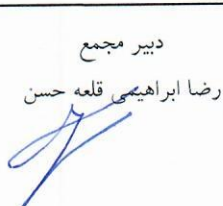 دبیر مجمع
رضا ابراهیمی قلعه حسن